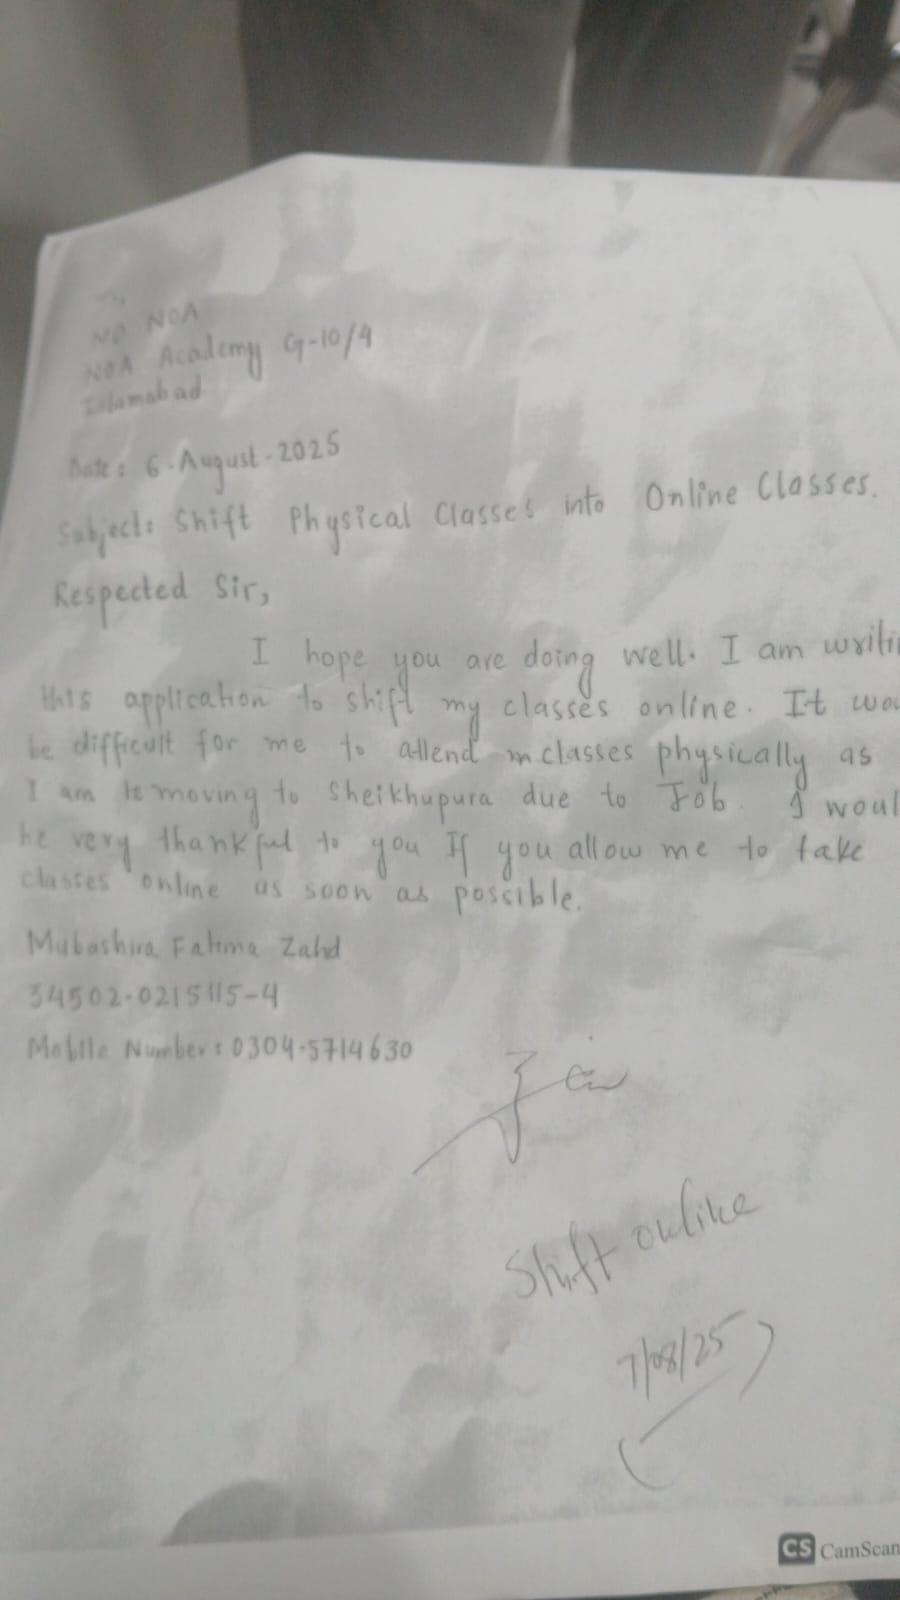 MD NOA
NOA Academy G-10/4
Islamabad
Date: 6-August-2025
Subject: Shift Physical Classes into Online Classes.
Respected Sir,
I hope you are doing well. I am writi
this application to shift my classes online. It wou
be difficult for me to attend m classes physically as
I am moving to Sheikhupura due to Job. I woul
be very thankful to you If you allow me to take
classes online as soon as possible.
Mubashira Fatima Zahd
34502-0215115-4
Mobile Number: 0304-5714630
Shift online
7/08/25
CS CamScan